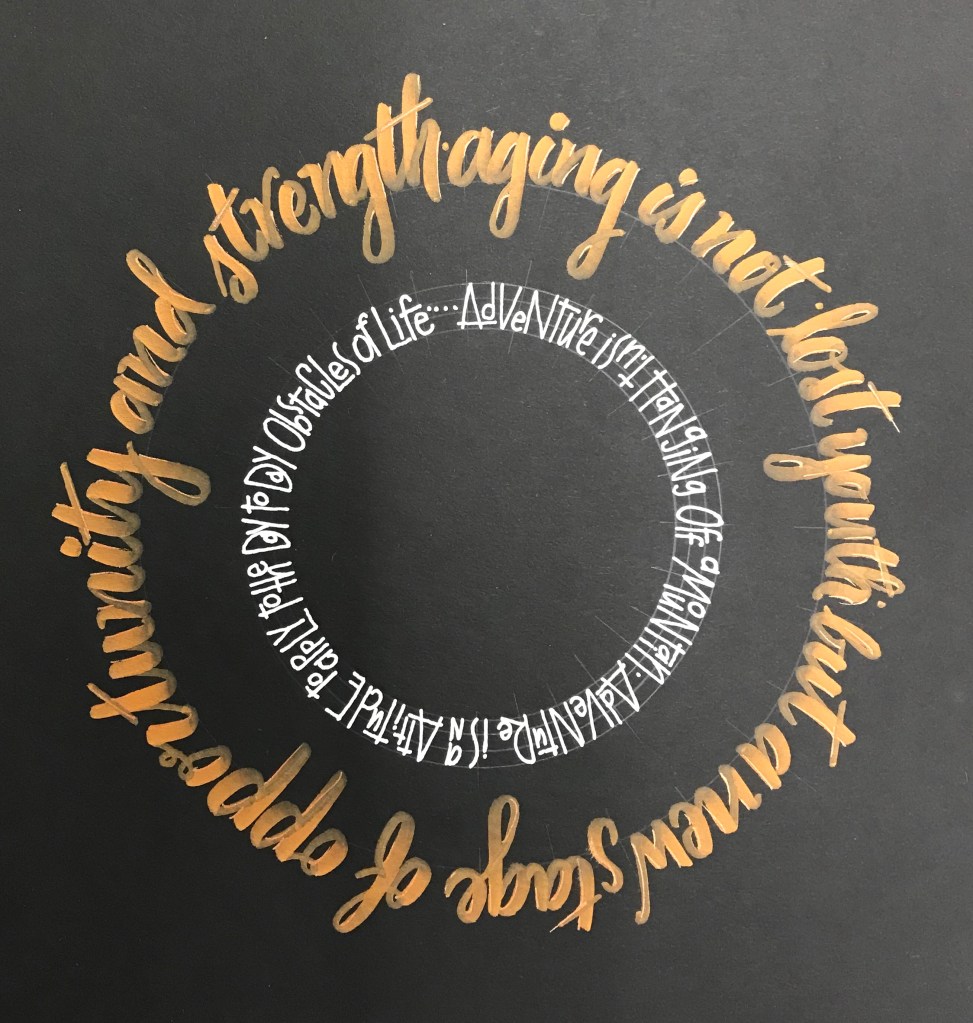 aging is not lost youth but a new stage of opportunity and strength.
AdVeNture isn't HaNgiNg Off a MoNtaN. AdVeNtuRe is aN Attitude to aPPLY to tHe DaY to DaY ObstaCLes of Life....